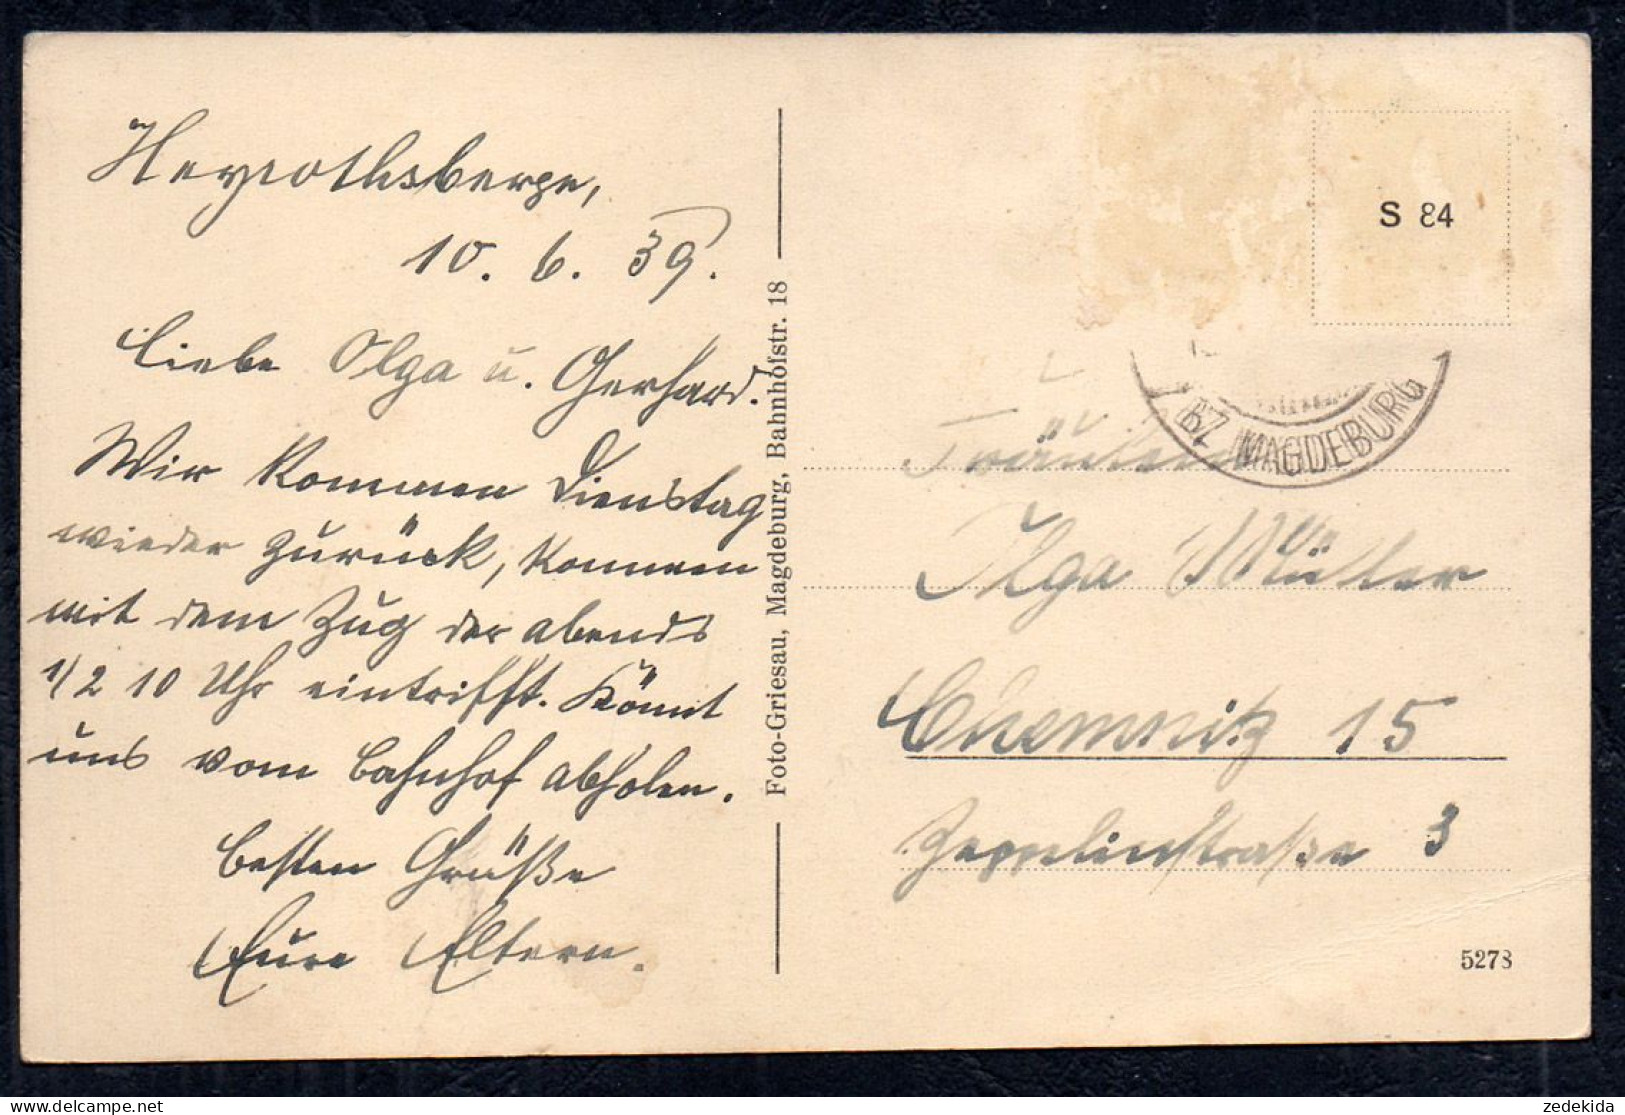 Heyrothsberge,
10. 6. 39.
Liebe Olga u. Gerhard.
Wir kommen Dienstag
wieder zurück, kommen
mit dem Zug der abends
1/2 10 Uhr eintrifft. Könnt
uns vom Bahnhof abholen.
Besten Grüße
Eure Eltern.
Foto-Griesau, Magdeburg, Bahnhofstr. 18
S 84
BZ MAGDEBURG
Fräulein
Olga Müller
Chemnitz 15
Zeppelinstraße 3
5278
zedekida